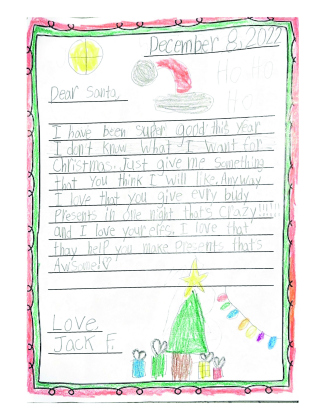 December 8, 2022
Ho Ho
Ho
Dear Santa,
I have been super good this year
I don't know what I want for
Christmas. Just give me something
that you think I will like. Anyway
I love that you give evry budy
Presents in one night that's crazy!!!!!
and I love your elfs. I love that
thay help you make presents that's
Avisome!
Love,
Jack F.